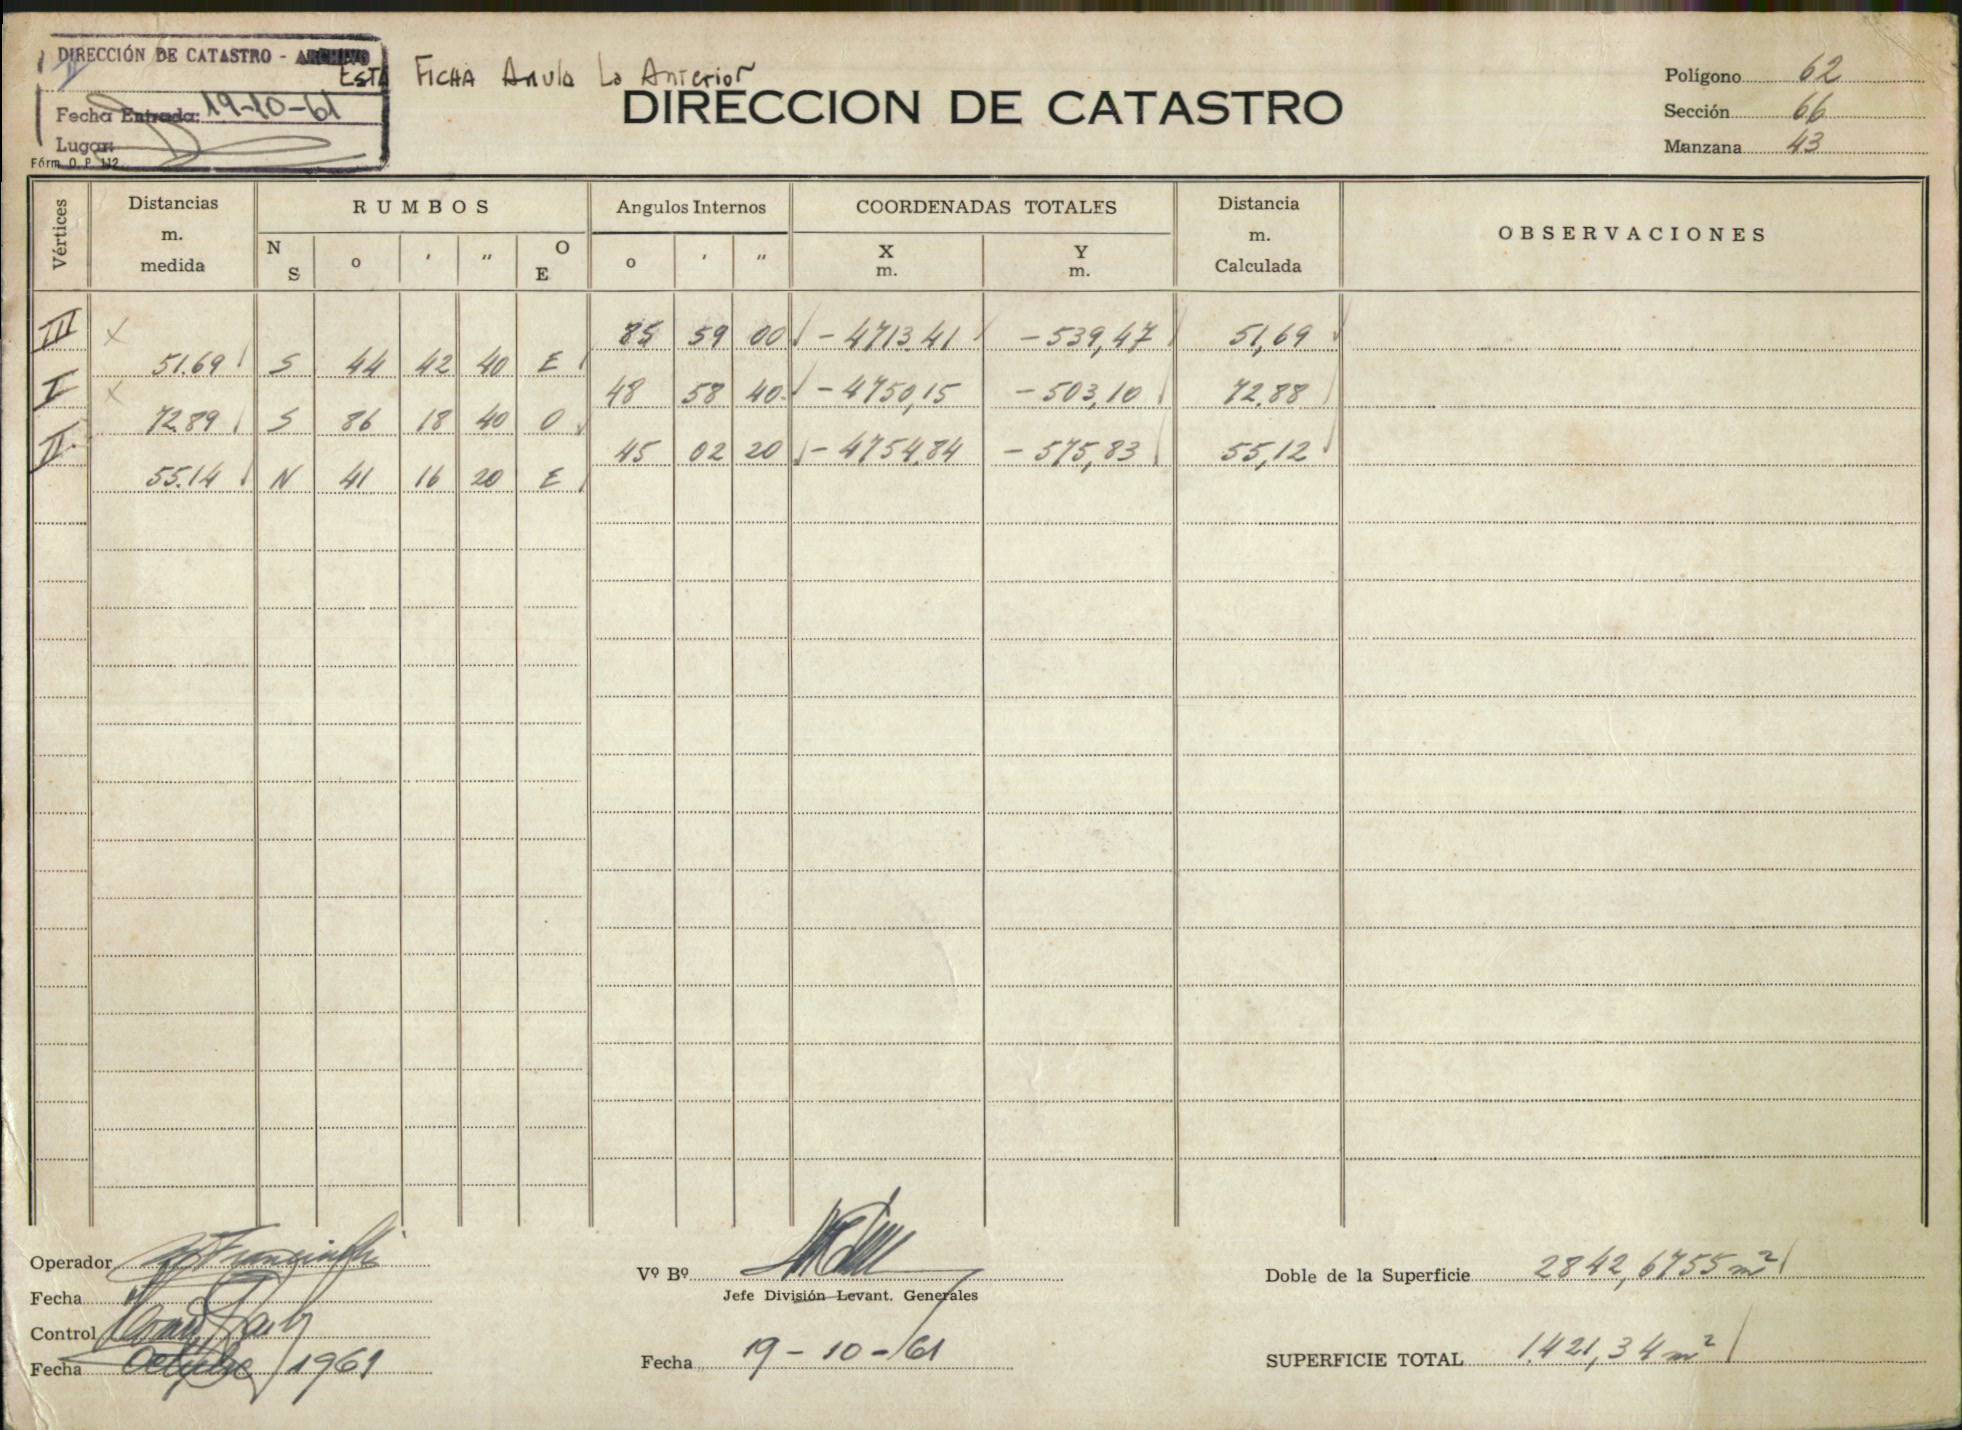 DIRECCIÓN DE CATASTRO - ARCHIVO
ESTA FICHA Anula La Anterior
Fecha Entrada: 19-10-61
Lugar:
Fórm. O. P. 112
DIRECCION DE CATASTRO
Polígono 62
Sección 66
Manzana 43
Vértices
Distancias m. medida
RUMBOS
Angulos Internos
COORDENADAS TOTALES
Distancia m. Calculada
OBSERVACIONES
N S o ' " O E
o ' "
X m.
Y m.
III 85 59 00 - 4713.41 - 539,47 51,69
51.69 S 44 42 40 E
I 48 58 40 - 4750,15 - 503,10 72,88
72.89 S 86 18 40 O
II 45 02 20 - 4754.84 - 575,83 55,12
55.14 N 41 16 20 E
Operador
Fecha
Control
Fecha Octubre 1961
Vº Bº
Jefe División Levant. Generales
Fecha 19-10-61
Doble de la Superficie 2842,6755 m²
SUPERFICIE TOTAL 1.421,34 m²